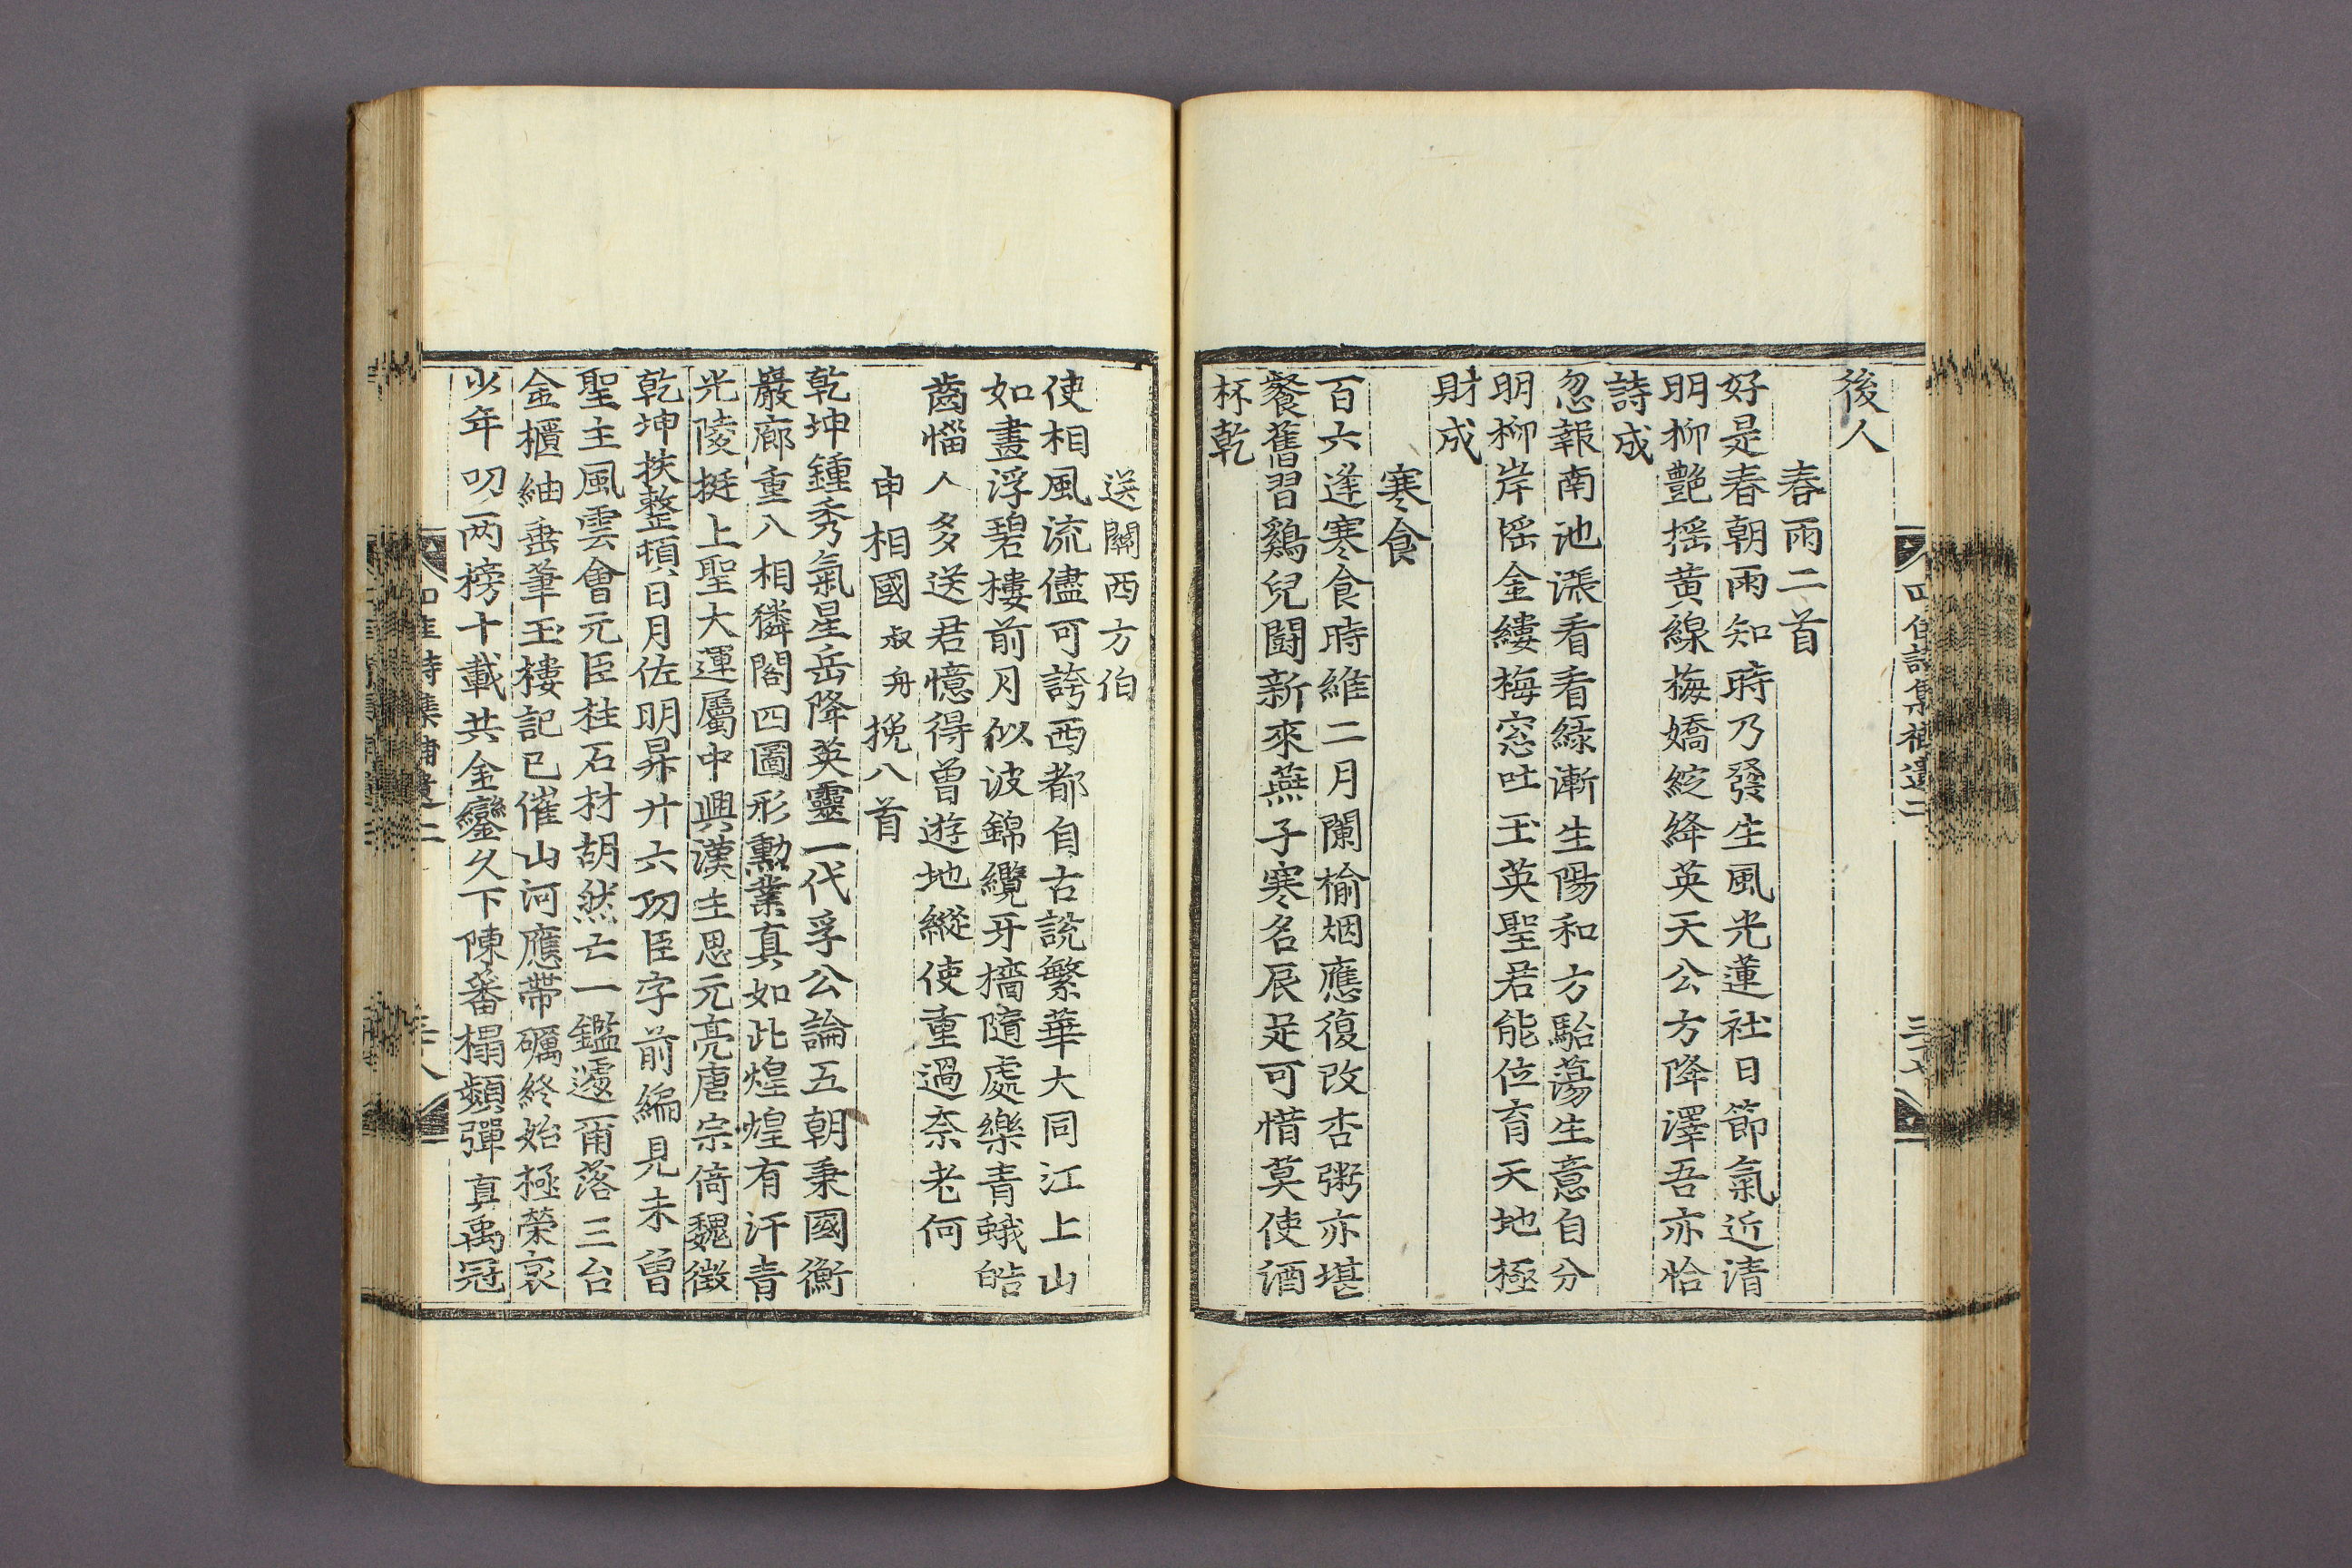 四佳詩集補遺二
三十七
後人
春雨二首
好是春朝雨知時乃發生風光蓮社日節氣近清
明柳艶搖黄線梅嬌綻絳英天公方降澤吾亦恰
詩成
忽報南池漲看看綠漸生陽和方駘蕩生意自分
明柳岸搖金縷梅窓吐玉英聖君能位育天地極
財成
寒食
百六逢寒食時維二月闌榆烟應復改杏粥亦堪
餐舊習鷄兒鬪新來燕子寒名辰足可惜莫使酒
杯乾
送關西方伯
使相風流儘可誇西都自古說繁華大同江上山
如畫浮碧樓前月似波錦纜牙檣隨處樂青蛾皓
齒惱人多送君憶得曾遊地縱使重過奈老何
申相國叔舟挽八首
乾坤鍾秀氣星岳降英靈一代孚公論五朝秉國衡
巖廊重八相獜閣四圖形勳業真如此煌煌有汗青
光陵挺上聖大運屬中興漢主思元亮唐宗倚魏徵
乾坤扶整頓日月佐明昇廿六功臣字前編見未曾
聖主風雲會元臣柱石材胡然亡一鑑遽爾落三台
金櫃紬垂筆玉樓記已催山河應帶礪終始極榮哀
少年叨兩榜十載共金鑾久下陳蕃榻頻彈真禹冠
四佳詩集補遺二
三十八